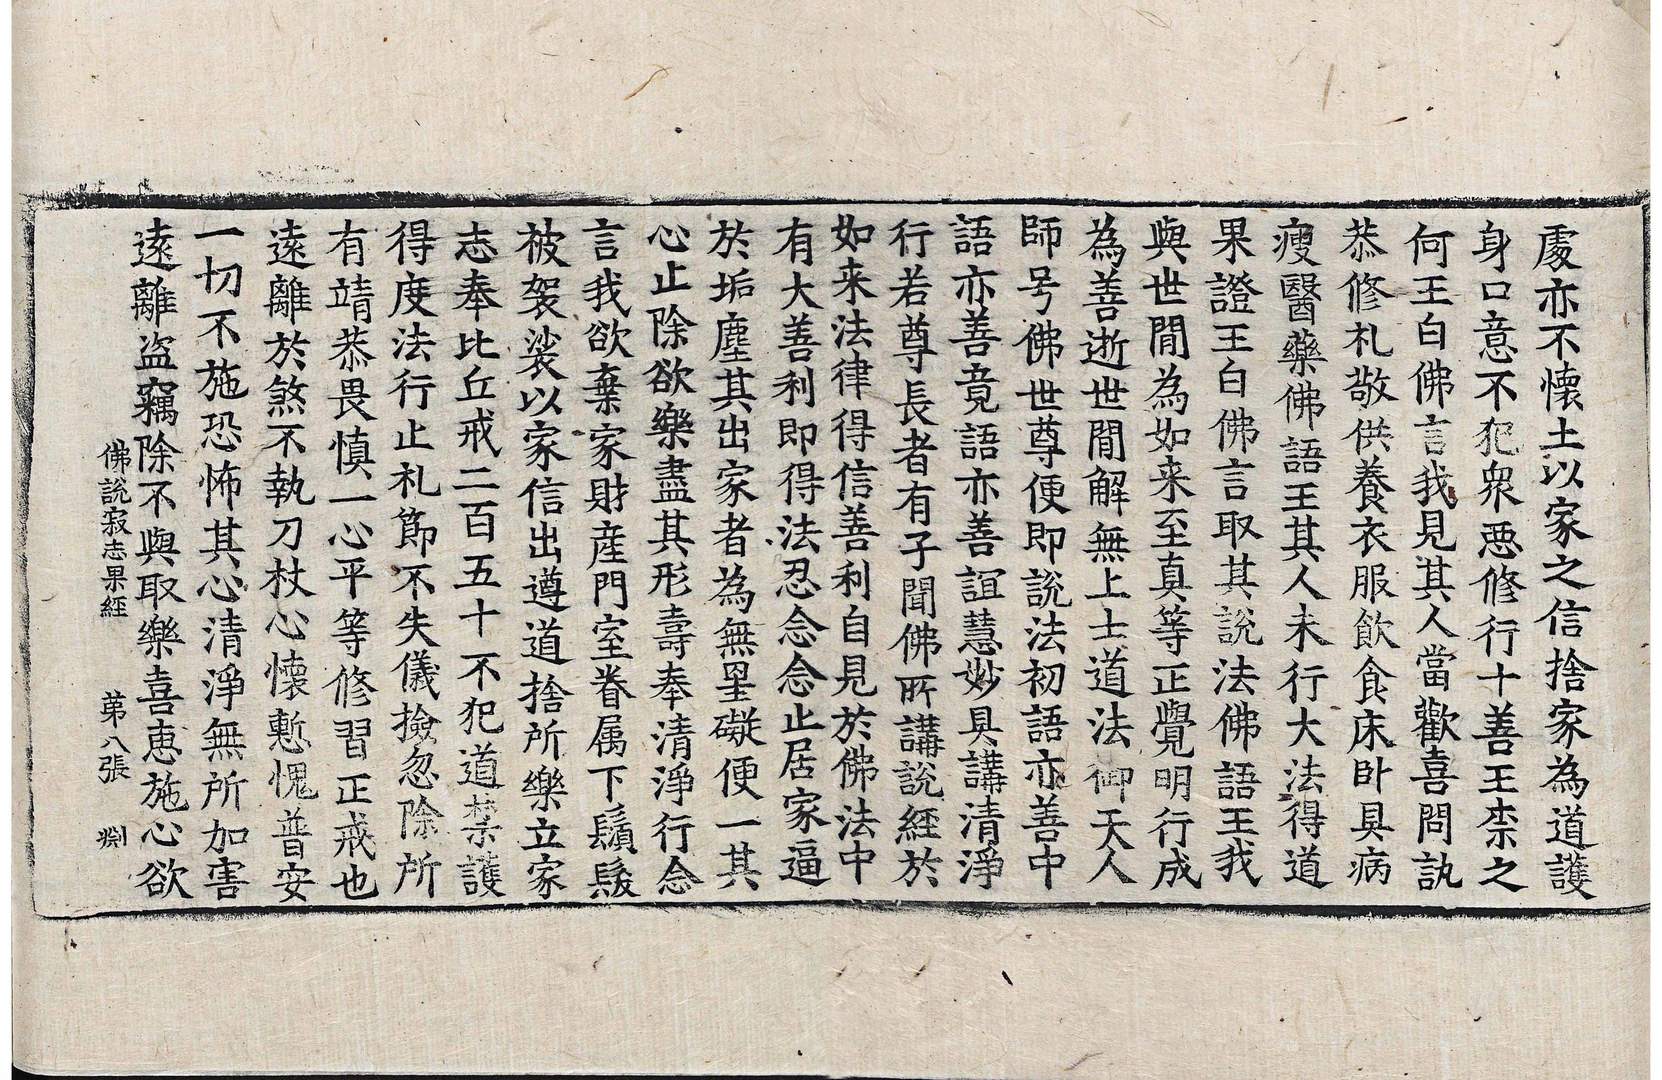 處亦不懷土以家之信捨家為道護
身口意不犯衆惡修行十善王柰之
何王白佛言我見其人當歡喜問訊
恭修礼敬供養衣服飲食床卧具病
瘦醫藥佛語王其人未行大法得道
果證王白佛言取其說法佛語王我
與世閒為如来至真等正覺明行成
為善逝世閒解無上士道法御天人
師号佛世尊便即說法初語亦善中
語亦善竟語亦善誼慧妙具講清淨
行若尊長者有子聞佛所講說經於
如来法律得信善利自見於佛法中
有大善利即得法忍念念止居家逼
於垢塵其出家者為無罣礙便一其
心止除欲樂盡其形壽奉清淨行念
言我欲棄家財産門室眷属下鬚髮
被袈裟以家信出遵道捨所樂立家
志奉比丘戒二百五十不犯道禁護
得度法行止礼節不失儀撿忽除所
有靖恭畏慎一心平等修習正戒也
遠離於煞不執刀杖心懷慙愧普安
一切不施恐怖其心清淨無所加害
遠離盗竊除不與取樂喜恵施心欲
佛說寂志果經 苐八張 淵